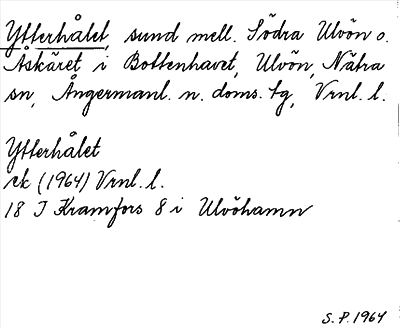 Ytterhålet, sund mell. Södra Ulvön o.
Åskäret i Bottenhavet, Ulvön, Nätra
sn, Ångermanl. n. doms. tg, Vrnl. l.
Ytterhålet
rk (1964) Vrnl. l.
18 I Kramfors 8 i Ulvöhamn
S.P. 1964